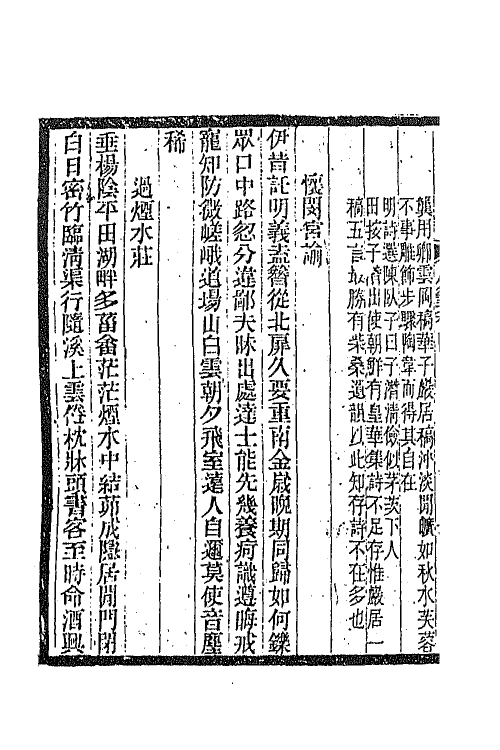 龔用卿雲岡稿華子嚴居稿沖淡閒曠如秋水芙蓉
不事雕飾步驟陶韋而得其自在
明詩選陳臥子曰子潛清儉似茅茨下人
田按子潛出使朝鮮有皇華集詩不足存惟嚴居一
稿五言最勝有柴桑遺韻以此知存詩不在多也
慨閔宮諭
伊昔証明義盍簪從北扉久要重南金歲晚期同歸如何鑠
眾口中路忽分違鄙夫昧出處達士能先幾養疴識遵晦戒
寵知防微嵯峨道場山白雲朝夕飛室遠人自邇莫使音塵
稀
過煙水莊
垂楊陰平田湖畔多菑畬茫茫煙水中結茆成隱居閒門閉
白日密竹臨清渠行隨溪上雲倦枕牀頭書客至時命酒興